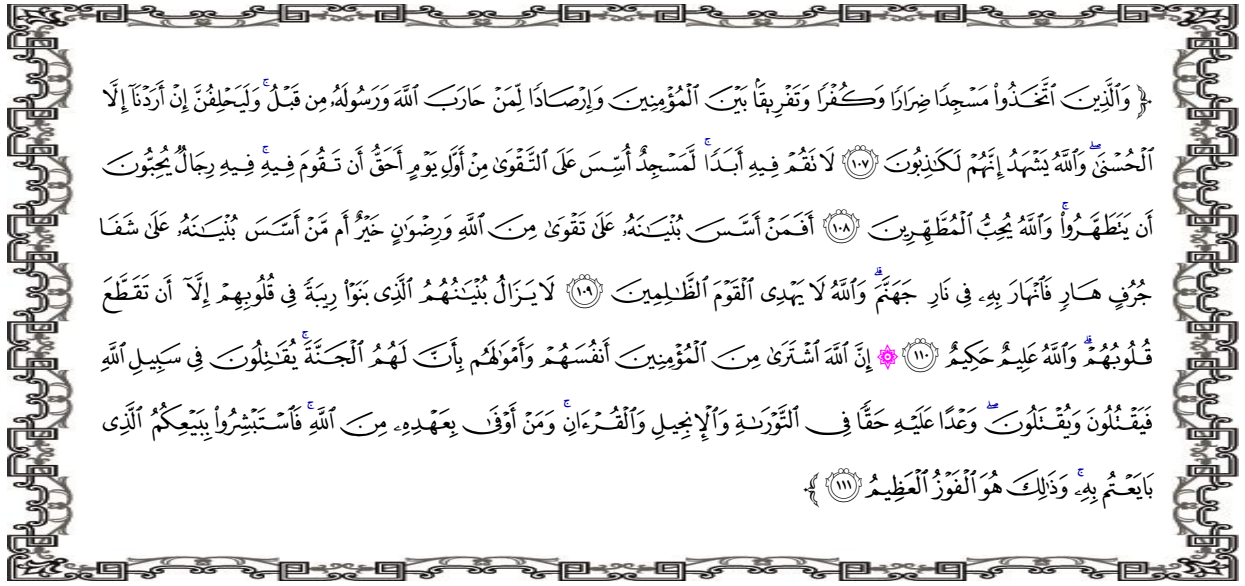 ﴿ وَٱلَّذِينَ ٱتَّخَذُوا۟ مَسْجِدًا ضِرَارًا وَكُفْرًا وَتَفْرِيقًۢا بَيْنَ ٱلْمُؤْمِنِينَ وَإِرْصَادًا لِّمَنْ حَارَبَ ٱللَّهَ وَرَسُولَهُۥ مِن قَبْلُ ۚ وَلَيَحْلِفُنَّ إِنْ أَرَدْنَآ إِلَّا
ٱلْحُسْنَىٰ ۖ وَٱللَّهُ يَشْهَدُ إِنَّهُمْ لَكَـٰذِبُونَ ١٠٧ لَا تَقُمْ فِيهِ أَبَدًا ۚ لَّمَسْجِدٌ أُسِّسَ عَلَى ٱلتَّقْوَىٰ مِنْ أَوَّلِ يَوْمٍ أَحَقُّ أَن تَقُومَ فِيهِ ۚ فِيهِ رِجَالٌ يُحِبُّونَ
أَن يَتَطَهَّرُوا۟ ۚ وَٱللَّهُ يُحِبُّ ٱلْمُطَّهِّرِينَ ١٠٨ أَفَمَنْ أَسَّسَ بُنْيَـٰنَهُۥ عَلَىٰ تَقْوَىٰ مِنَ ٱللَّهِ وَرِضْوَٰنٍ خَيْرٌ أَم مَّنْ أَسَّسَ بُنْيَـٰنَهُۥ عَلَىٰ شَفَا
جُرُفٍ هَارٍ فَٱنْهَارَ بِهِۦ فِى نَارِ جَهَنَّمَ ۗ وَٱللَّهُ لَا يَهْدِى ٱلْقَوْمَ ٱلظَّـٰلِمِينَ ١٠٩ لَا يَزَالُ بُنْيَـٰنُهُمُ ٱلَّذِى بَنَوْا۟ رِيبَةً فِى قُلُوبِهِمْ إِلَّآ أَن تَقَطَّعَ
قُلُوبُهُمْ ۗ وَٱللَّهُ عَلِيمٌ حَكِيمٌ ١١٠ ۞ إِنَّ ٱللَّهَ ٱشْتَرَىٰ مِنَ ٱلْمُؤْمِنِينَ أَنفُسَهُمْ وَأَمْوَٰلَهُم بِأَنَّ لَهُمُ ٱلْجَنَّةَ ۚ يُقَـٰتِلُونَ فِى سَبِيلِ ٱللَّهِ
فَيَقْتُلُونَ وَيُقْتَلُونَ ۖ وَعْدًا عَلَيْهِ حَقًّا فِى ٱلتَّوْرَىٰةِ وَٱلْإِنجِيلِ وَٱلْقُرْءَانِ ۚ وَمَنْ أَوْفَىٰ بِعَهْدِهِۦ مِنَ ٱللَّهِ ۚ فَٱسْتَبْشِرُوا۟ بِبَيْعِكُمُ ٱلَّذِى
بَايَعْتُم بِهِۦ ۚ وَذَٰلِكَ هُوَ ٱلْفَوْزُ ٱلْعَظِيمُ ١١١ ﴾